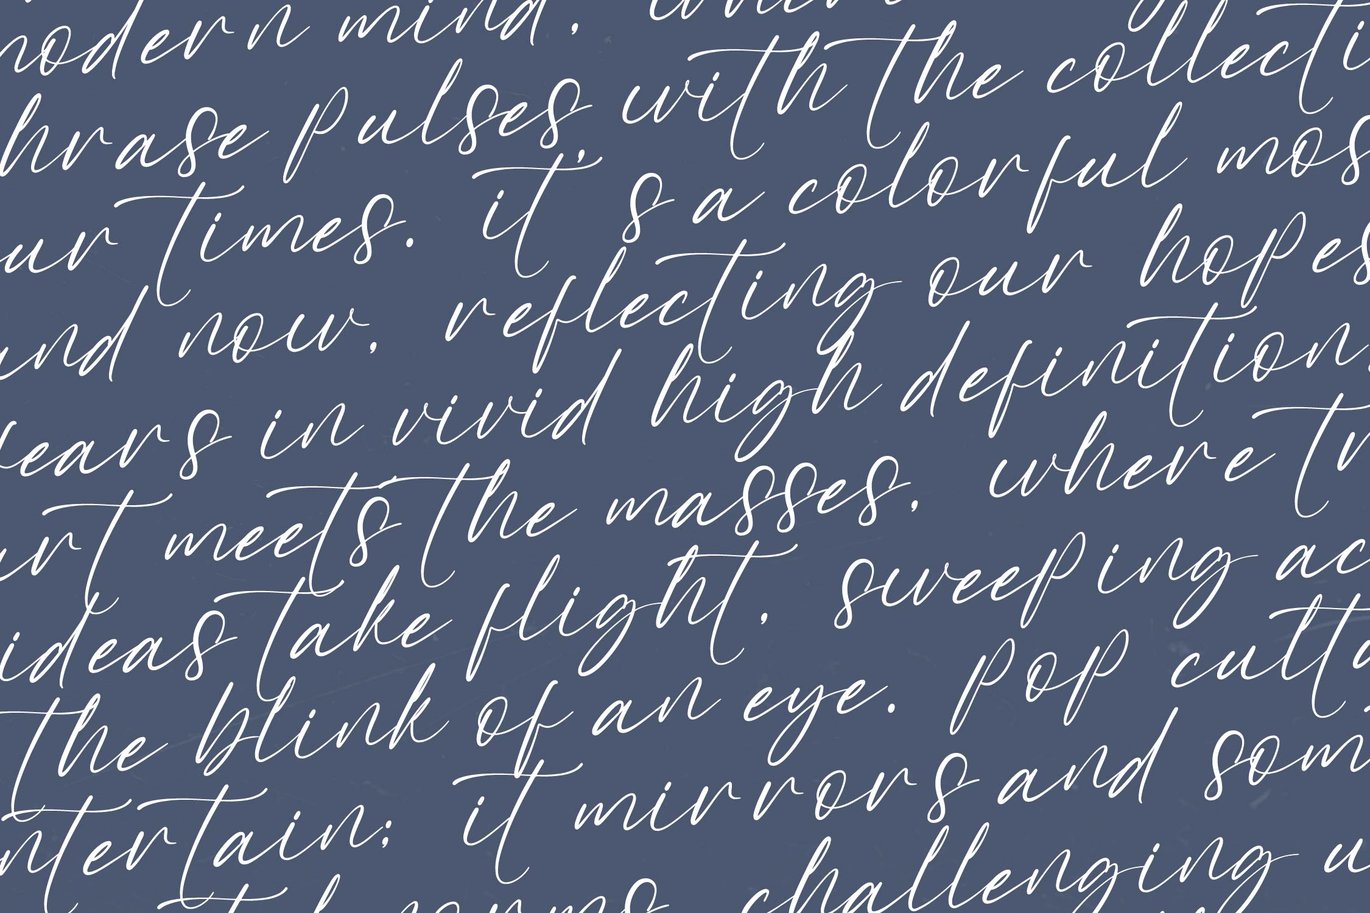 modern mind, where
phrase pulses, with the collecti
our times. it's a colorful mos
and now, reflecting our hopes
fears in vivid high definition.
art meets the masses, where tr
ideas take flight, sweeping ac
the blink of an eye. pop cultu
entertain; it mirrors and som
norms, challenging u